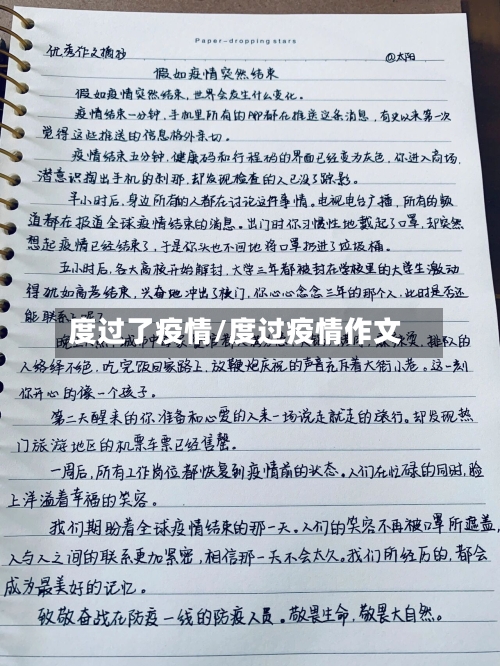 Paper-dropping stars
优秀作文摘抄
@太阳
假如疫情突然结束
假如疫情突然结束,世界会发生什么变化。
疫情结束一分钟,手机里所有的APP都在推送这条消息,有史以来第一次
觉得这些推送的信息格外亲切。
疫情结束五分钟,健康码和行程码的界面已经变为灰色,你进入商场,
潜意识掏出手机的刹那,却发现检查的人已没了踪影。
半小时后,身边所有的人都在讨论这件事情。电视电台广播,所有的频
道都在报道全球疫情结束的消息。出门时你习惯性地戴起了口罩,却突然
想起疫情已经结束了,于是你头也不回地将口罩扔进了垃圾桶。
五小时后,各大高校开始解封,大学三年都被封在学校里的大学生激动
得犹如高考结束,兴奋地冲出了校门,你心心念念三年的那个人,此时是否还
能联系上呢?
度过了疫情/度过疫情作文
排队的
人络绎不绝,吃完饭回家路上,放鞭炮庆祝的声音充斥着大街小巷。这一刻
你开心的像一个孩子。
第二天醒来的你,准备和心爱的人来一场说走就走的旅行。却发现热
门旅游地区的机票车票已经售罄。
一周后,所有工作岗位都恢复到疫情前的状态。人们在忙碌的同时,脸
上洋溢着幸福的笑容。
我们期盼着全球疫情结束的那一天。人们的笑容不再被口罩所遮盖,
人与人之间的联系更加紧密,相信那一天不会太久。我们所经历的,都会
成为最美好的记忆。
致敬奋战在防疫一线的防疫人员。敬畏生命,敬畏大自然。